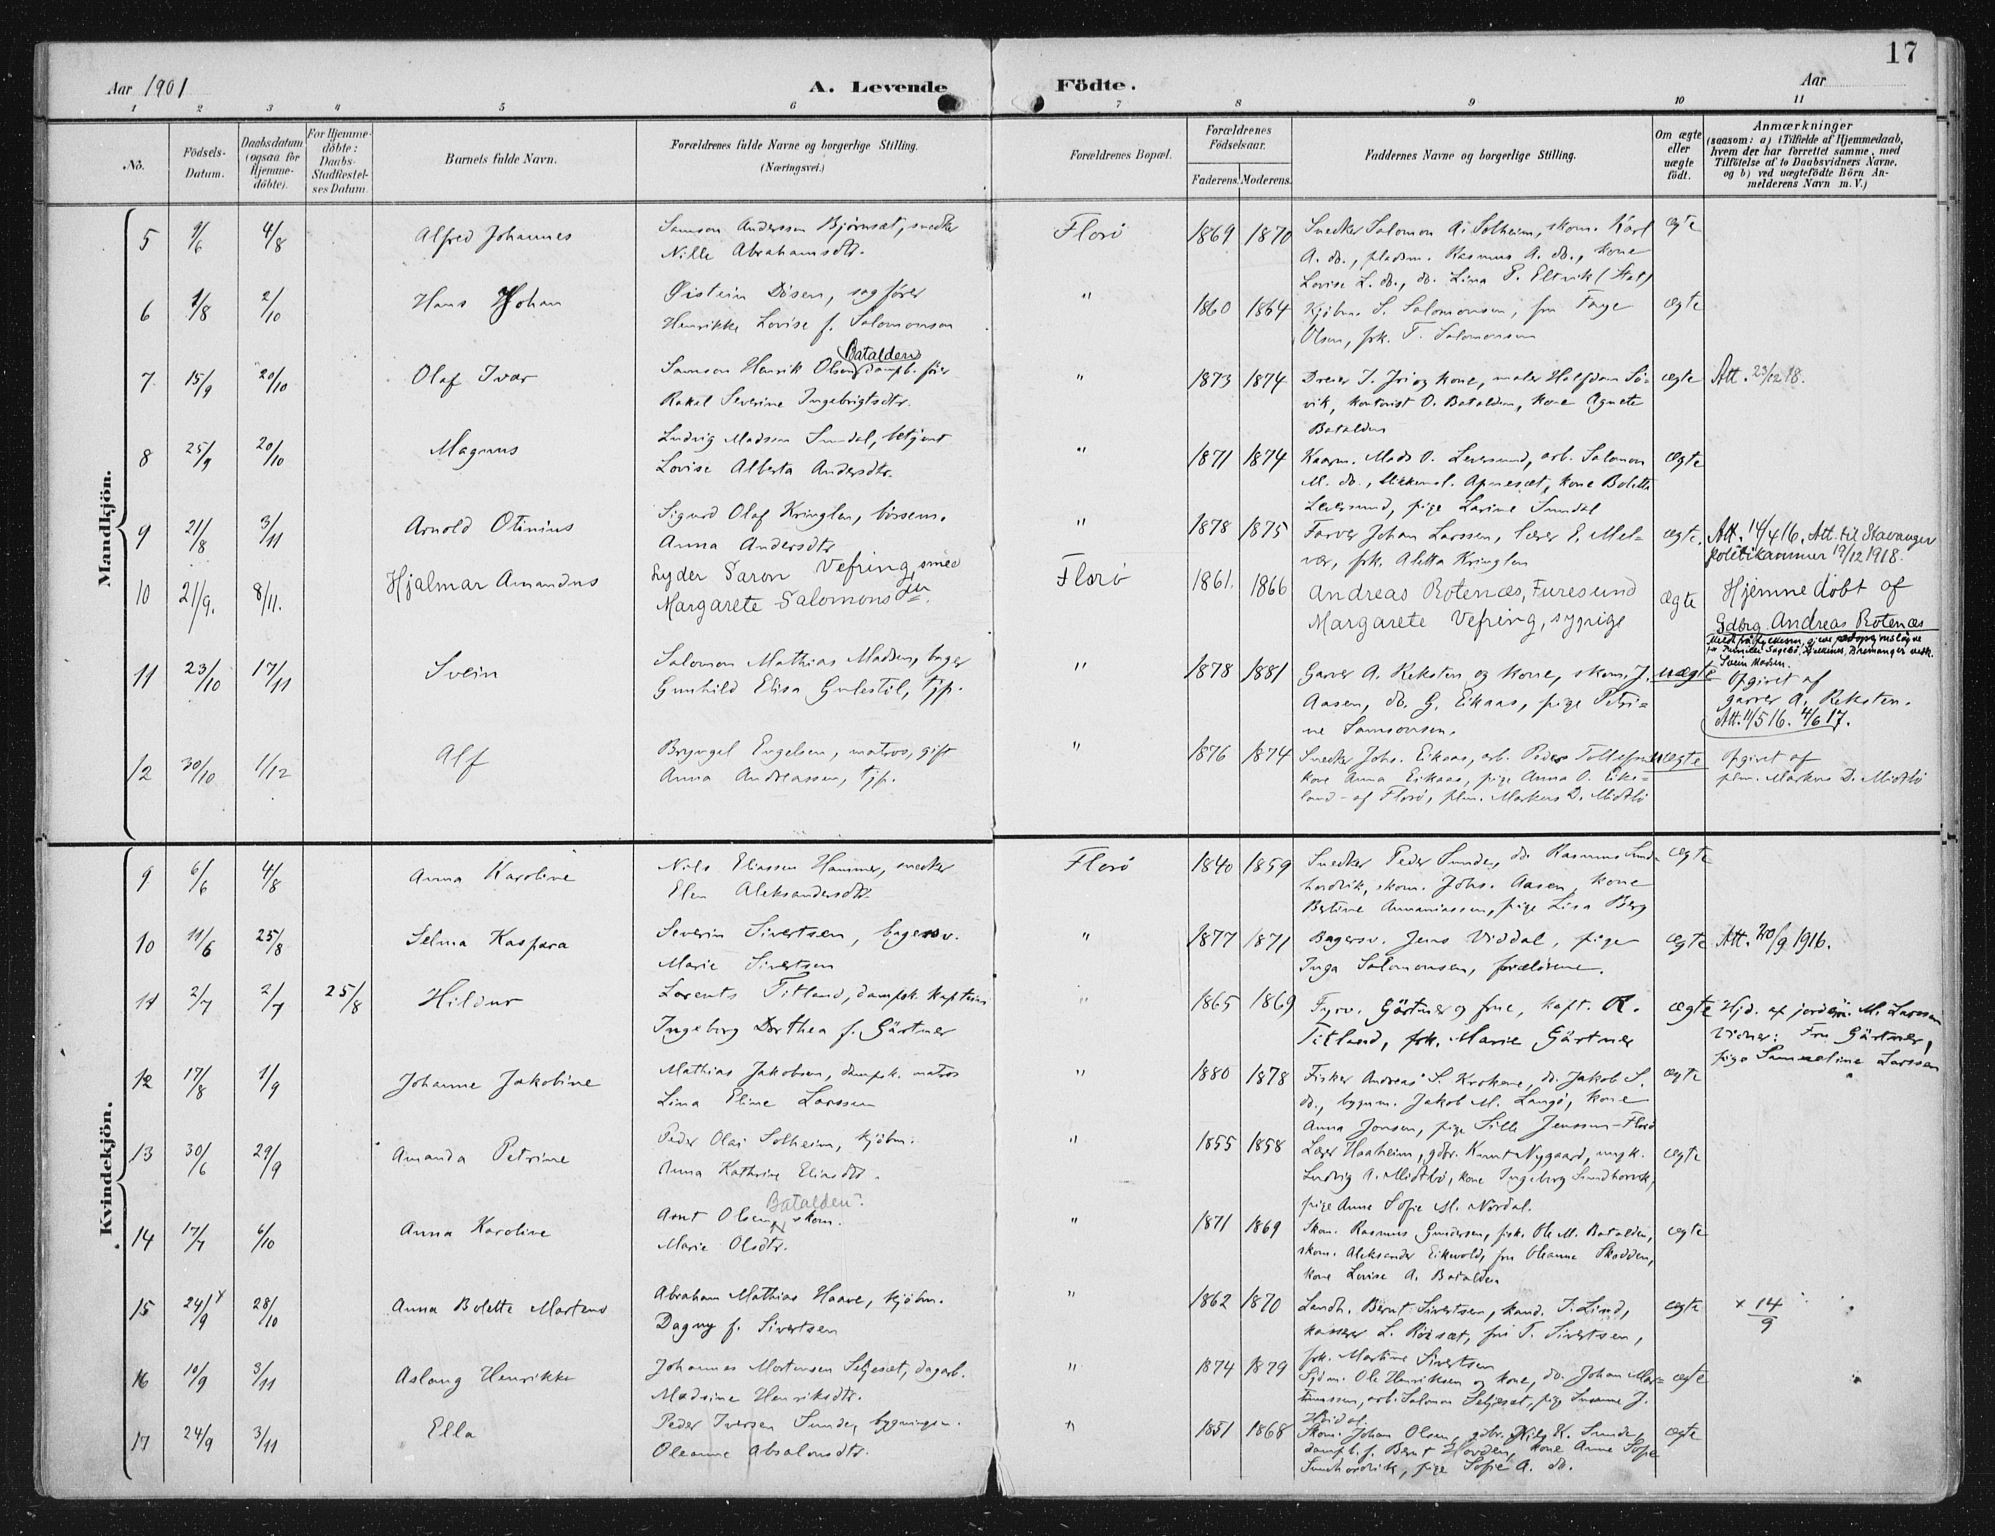 17
Aar 1901
A. Levende
Födte.
Aar
1 2 3 4 5 6 7 8 9 10 11
No.
Födsels-
Datum.
Daabsdatum
(ogsaa for
Hjemme-
döbte).
For Hjemme-
döbte:
Daabs-
Stadfæstel-
ses Datum.
Barnets fulde Navn.
Forældrenes fulde Navne og borgerlige Stilling.
(Næringsvei.)
Forældrenes Bopæl.
Forældrenes
Födselsaar.
Faderens. Moderens.
Faddernes Navne og borgerlige Stilling.
Om ægte
eller
uægte
födt.
Anmærkninger
(saasom: a) i Tilfælde af Hjemmedaab,
hvem der har forrettet samme, med
Tilföielse af to Daabsvidners Navne,
og b) ved uægtefödte Börn An-
melderens Navn m. V.)
Mandkjön.
5 9/6 4/8 Alfred Johannes
Samson Anderssen Björnset, snedker
Nille Abrahamsdtr.
Florö 1869 1870
Snedker Salomon A. Solheim, skom. Karl
A. do., pladsm. Rasmus A. do., kone
Lovise L. do., do. Lina P. Eltvik (Stat)
ægte
6 1/8 2/10 Hans Johan
Øistein Dösen, sagförer
Henrikke Lovise f. Salomonsen
" 1860 1864
Kjöbm. S. Salomonsen, fru Fanye
Olsen, frk. T. Salomonsen
ægte
7 15/9 20/10 Olaf Ivar
Batalden
Samson Henrik Olsen, dampb. förer
Rakel Severine Ingebrigtsdtr.
" 1873 1874
Dreier J. Jri og kone, maler Halfdan Sö-
vik, kontorist O. Batalden, kone Agnete
Batalden
ægte Att. 23/12 18.
8 25/9 20/10 Magnus
Ludvig Madssen Sundal, betjent
Lovise Alberta Andersdtr.
" 1871 1874
Kaarm. Mads O. Leversund, arb. Salomon
M. do., Apnesæt, kone Bolette
Leversund, pige Larine Sundal
ægte
9 21/8 3/11 Arnold Otinius
Sigurd Olaf Kringlen, bössem.
Anna Andersdtr.
" 1878 1875
Farver Johan Larssen, lærer E. Mel-
vær, frk. Aletta Kringlen
ægte. Att. 14/4 16. Att. til Stavanger
politikammer 19/12 1918.
10 21/9. 8/11. Hjalmar Amandus
Lyder Saron Vefring, smed
Margarete Salomonsdtr.
Florö 1861. 1866
Andreas Rotenæs, Furesund
Margarete Vefring, sypige
ægte Hjemmedöbt af
Gdbrg. Andreas Rotenæs
11 23/10 17/11 Svein
Salomon Mathias Madsen, bager
Gunhild Elisa Gulestil, tjp.
" 1878 1881
Garver A. Reksten og kone, skom. J.
Aasen, do. G. Eikaas, pige Petri-
ne Samsonsen.
uægte
Svein Madsen.
Opgivet af
garver A. Reksten.
Att. 11/5 16. 4/6 17.
12 30/10 1/12 Alf
Bryngel Engelsen, matros, gift
Anna Andreassen, tjp.
" 1876 1874
Snedker Johs. Eikaas, arb. Peder Tollefsen
kone Anna Eikaas, pige Anna O. Eike-
land - af Florö, plm. Markus D. Midtbö
uægte Opgivet af
plm. Markus D. Midtbö
Kvindekjön.
9 6/6 4/8 Anna Karoline
Nils Eliassen Hammer, snedker
Elen Aleksandersdtr.
Florö 1840 1859
Snedker Peder Sunde, do. Rasmus Sund-
hordvik, skom. Johs. Aasen, kone
Bertine Annaniassen, pige Lisa Berg
ægte
10 11/6 25/8 Selma Kaspara
Severin Sivertsen, bagersv.
Marie Sivertsen
" 1877 1871
Bagersv. Jens Viddal, pige
Inga Salomonsen, forældrene.
ægte Att. 20/9 1916.
11 2/7 2/7 25/8 Hildur
Lorents Titland, dampsk. kaptein
Ingeborg Dorthea f. Gärtner
" 1865 1869
Fyrv. Gärtner og frue, kapt. R.
Titland, frk. Marie Gärtner
ægte Hjd. af jordem. M. Larssen
Vidner: Fru Gärtner,
pige Sammeline Larssen
12 17/8 1/9 Johanne Jakobine
Mathias Jakobsen, dampsk. matros
Lina Eline Larssen
" 1880 1878
Fisker Andreas S. Krokene, do. Jakob S.
do., bygnm. Jakob M. Langö, kone
Anna Jonsen, pige Sille Jenssen-Florö
ægte
13 30/6 29/9 Amanda Petrine
Peder Olai Solheim, kjöbm.
Anna Kathrine Eliasdtr.
" 1855 1858
Lærer Haaheim, gdbr. Knut Nygaard, ungk.
Ludvig A. Midtbö, kone Ingeborg Sundhorvik,
pige Anna Sofie M. Nordal.
ægte
14 17/7 6/10 Anna Karoline
Batalden?
Arnt Olsen, skom.
Marie Olsdtr.
" 1871 1869
Skom. Rasmus Gundersen, fisk. Ole M. Batalden,
skom. Aleksander Eikevold, fru Oleanne Skadden,
kone Lovise A. Batalden
ægte
15 24/9 x 28/10 Anna Bolette Martens
Abraham Mathias Haave, kjöbm.
Dagny f. Sivertsen
" 1862 1870
Landh. Bernt Sivertsen, kand. J. Lind,
kasserer L. Röisæt, fru T. Sivertsen,
frk. Martine Sivertsen
ægte x 14/9
16 10/9 3/11 Aslaug Henrikke
Johannes Mortensen Seljeset, dagarb.
Madsine Henriksdtr.
" 1874 1879
Sjöm. Ole Henriksen og kone, do. Johan Mar-
tinussen, arb. Salomon Seljeset, pige Susanne J.
Hvidal.
ægte
17 24/9 3/11 Ella
Peder Iversen Sunde, bygningsm.
Oleanne Absalonsdtr.
" 1851 1868
Skom. Johan Olsen, gdbr. Nils K. Sunde,
dampb. f. Bernt Hovden, kone Anne Sofie
Sundhordvik, pige Sofie A. do.
ægte